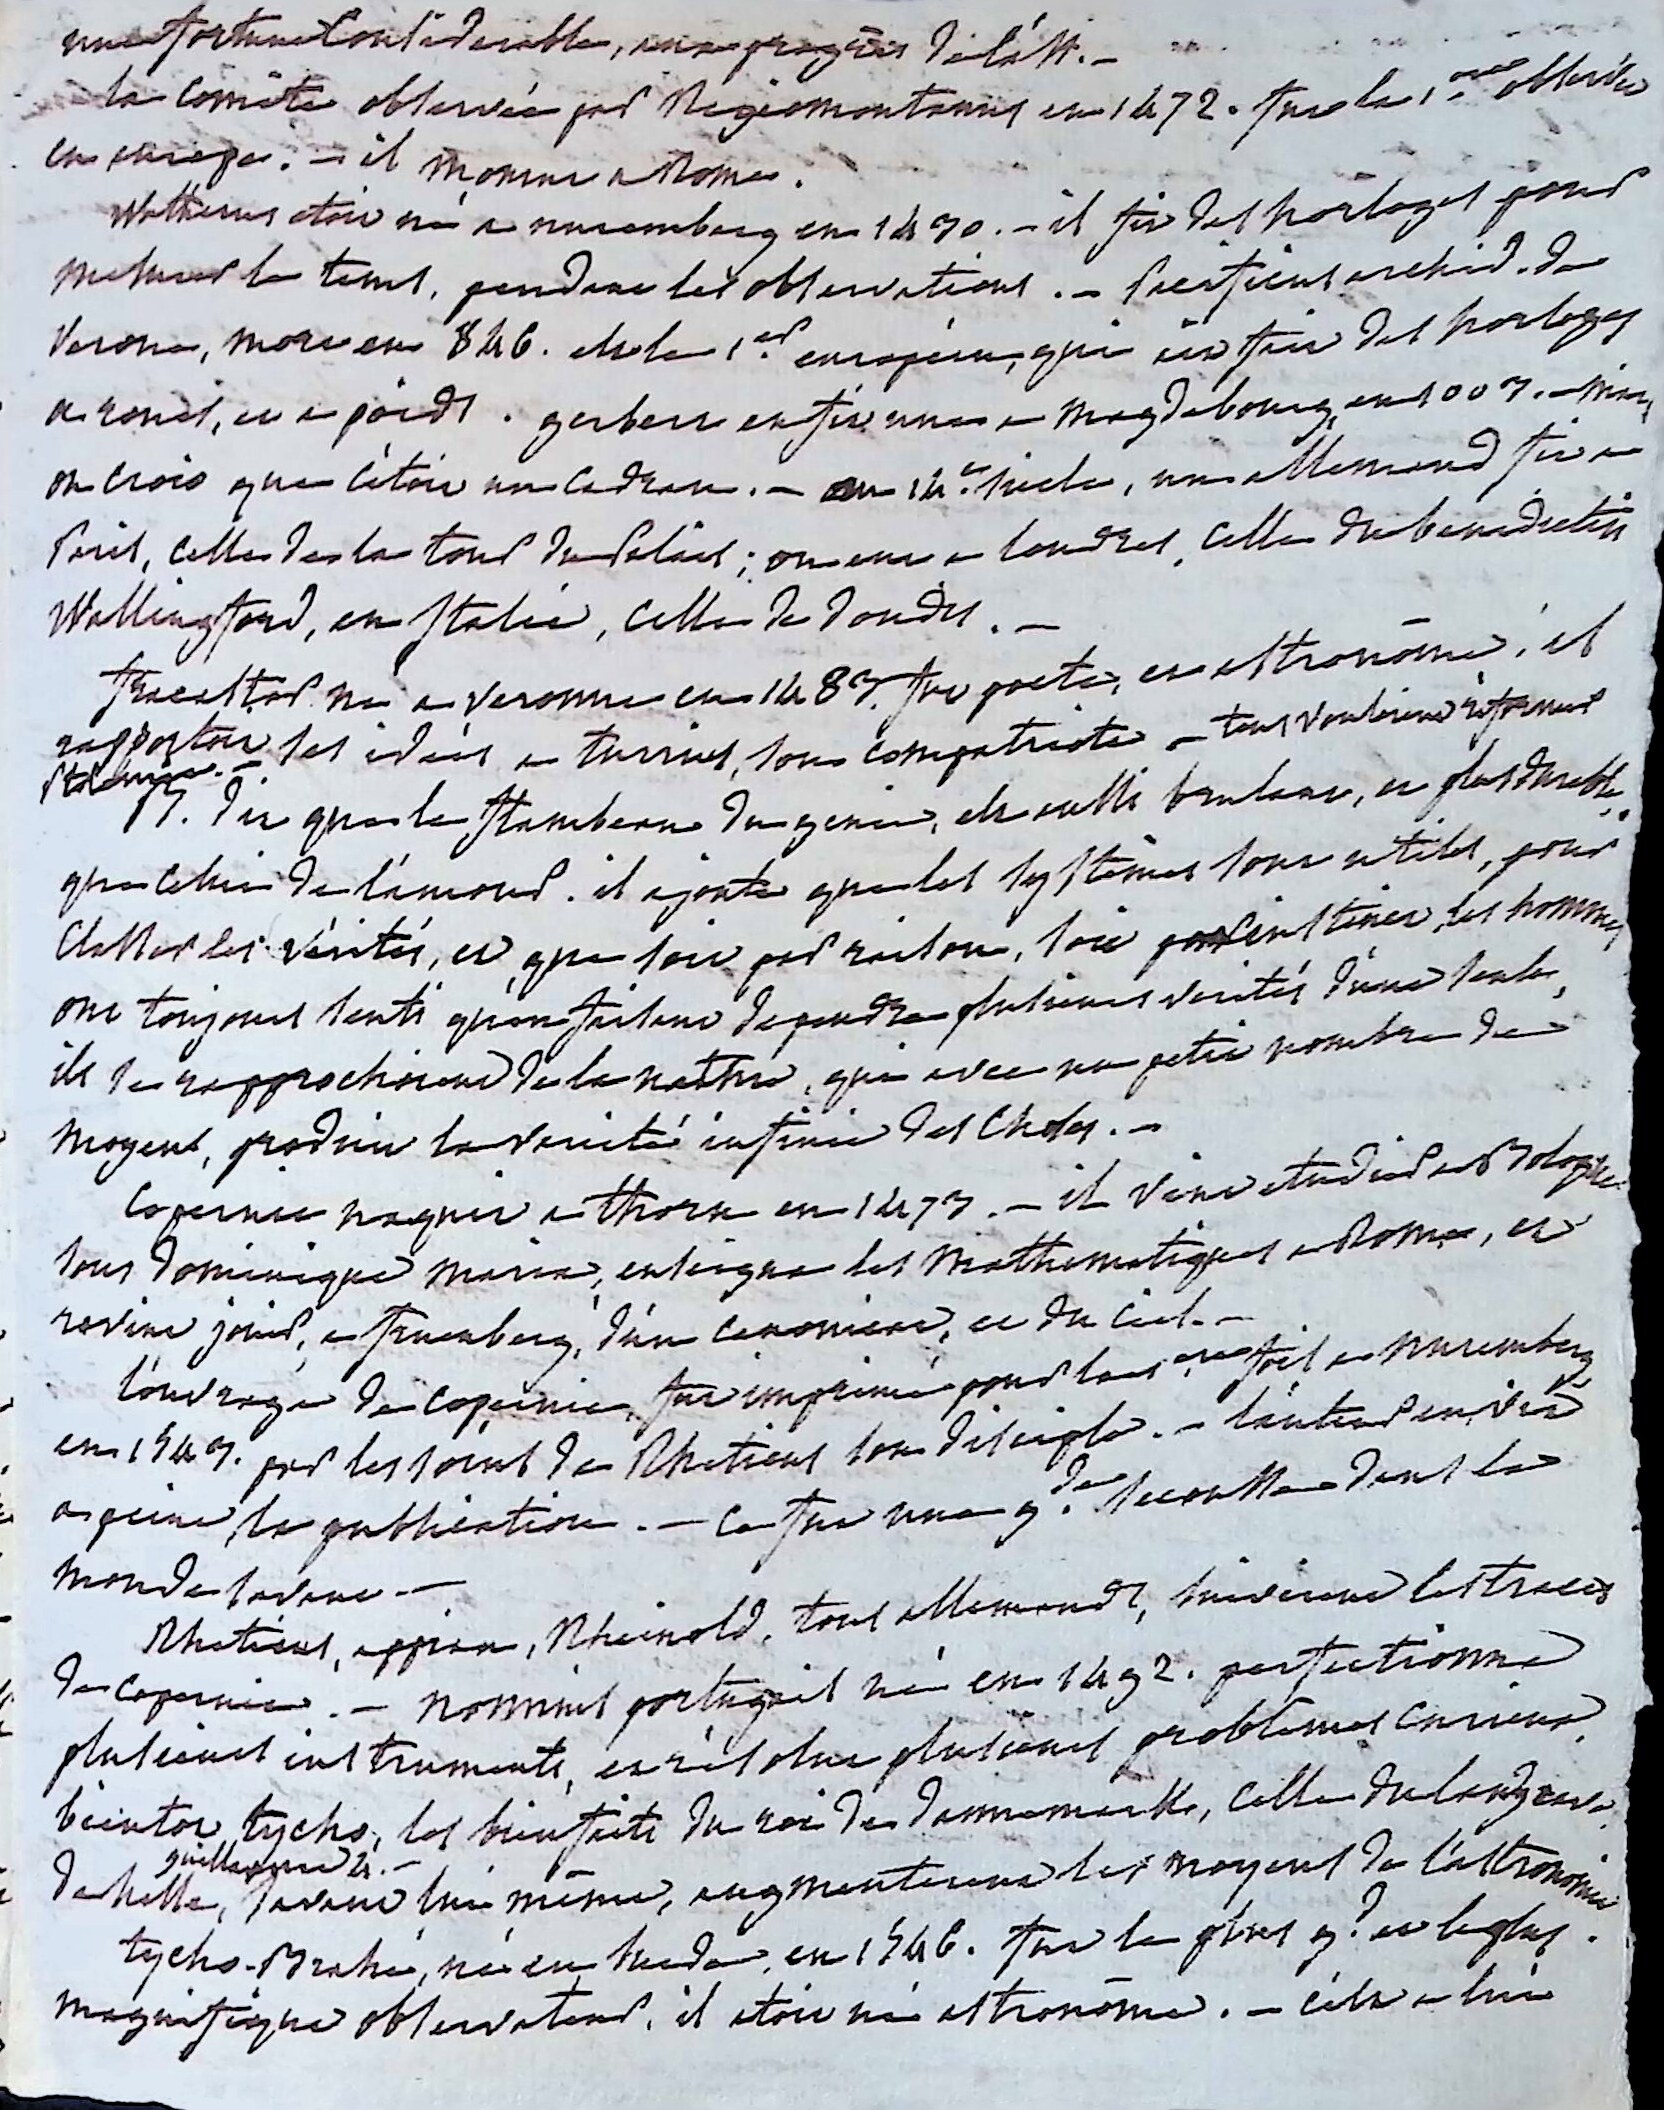 une fortune considerable, aux progrès de l'att.–
la comete observée par Regiomontanus en 1472. fut la 1.ere observée
en europe. – il mourut a Rome.
Waltherus etoit né a nuremberg en 1430. – il fit des horloges pour
mesurer le tems, pendant les observations. – Pacificus archid. de
Verone, mort en 846. est le 1.er européen, qui ait fait des horloges
a roues, et a poids. gerbert en fit une a Magdebourg, en 1003. – Mais
on croit que c'étoit un cadran. – au 14.e siecle, un allemand fit a
Paris, celle de la tour du Palais; on eut a londres, celle du benedictin
Wallingford, en Italie, celle de dondis. –
fracastor né a veronne en 1483. fut poete, et astronôme, il
rapportoit ses idées a turrius, son compatriote – tous vouloient réformer
Ptolemée. –
B. dit que le flambeau du genie, est aussi brulant, et plus durable,
que celui de l'amour. il ajoute que les systêmes sont utiles, pour
classer les vérités, et que soit par raison, soit par instinct, les hommes
ont toujours senti qu'en faisant dependre plusieurs verités d'une seule,
ils se rapprochoient de la nature, qui avec un petit nombre de
moyens, produit la varieté infinie des choses. –
Copernic naquit a thorn en 1473. – il vint etudier a Bologne
sous dominique maria, enseigna les mathematiques a Rome, et
revint jouir, a fruenberg, d'un canonicat, et du ciel. –
l'ouvrage de copernic, fut imprimé pour la 1.ere fois a nuremberg
en 1543. par les soins de Rheticus son disciple. – l'auteur en vit
a peine, la publication. – ce fut une g.de secousse dans le
monde savant. –
Rheticus, appian, Rheinold, tous allemands, suivirent les traces
de copernic. – nonnius portugais né en 1492. perfectionna
plusieurs instruments, et résolut plusieurs problemes curieux.
bientot tycho, les bienfaits du roi de dannemarck, celle du landgrave
guillaume 4. –
de hesse, savant lui même, augmenterent les moyens de l'astronomie
tycho-Brahé, né en suede, en 1546. fut le plus g.d et le plus
magnifique observateur, il etoit né astronôme. – c'est a lui